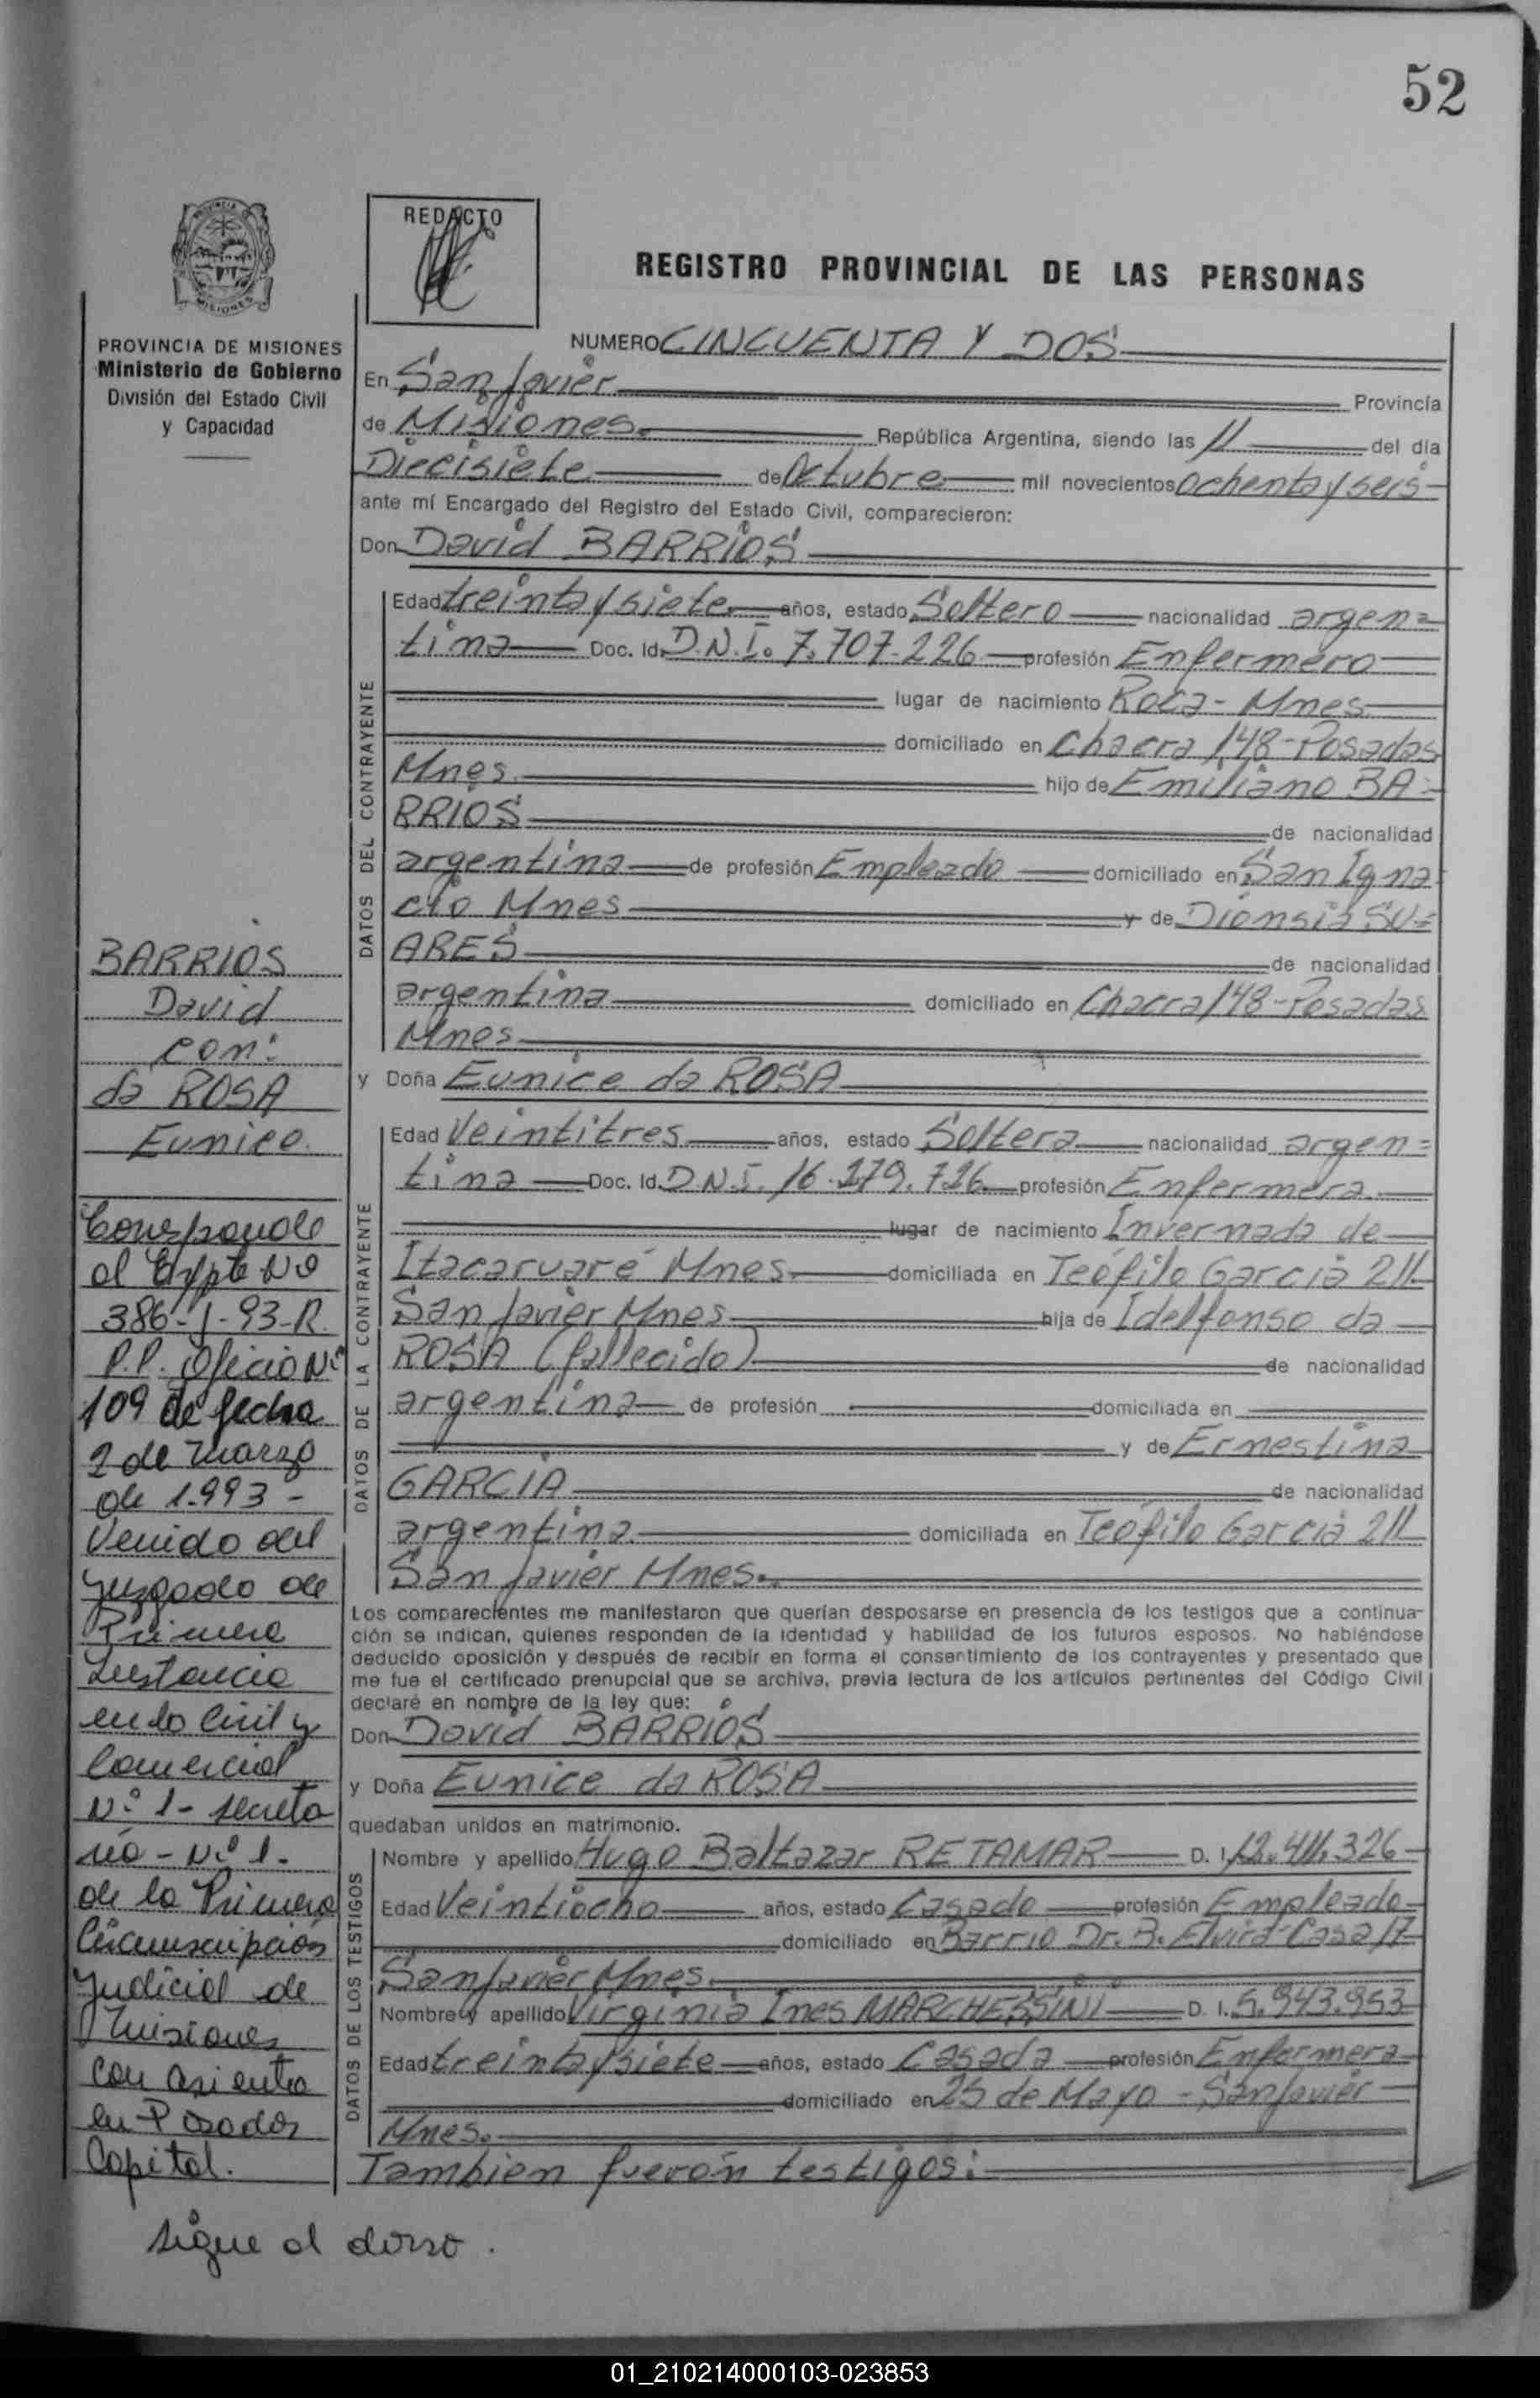 52
REDACTO
REGISTRO PROVINCIAL DE LAS PERSONAS
PROVINCIA DE MISIONES
Ministerio de Gobierno
División del Estado Civil
y Capacidad
NUMERO CINCUENTA Y DOS
En San Javier Provincia
de Misiones. República Argentina, siendo las 11 del día
Diecisiete de Octubre mil novecientos ochenta y seis
ante mí Encargado del Registro del Estado Civil, comparecieron:
Don David BARRIOS
DATOS DEL CONTRAYENTE
Edad treinta y siete años, estado Soltero nacionalidad argen=
tina Doc. Id. D.N.I. 7.707.226 profesión Enfermero
lugar de nacimiento Roca - Mnes
domiciliado en Chacra 148-Posadas
Mnes. hijo de Emiliano BA=
RRIOS de nacionalidad
argentina de profesión Empleado domiciliado en San Igna
cio Mnes y de Dionsia SU=
ARES de nacionalidad
argentina domiciliado en Chacra 148-Posadas
Mnes.
y Doña Eunice da ROSA
DATOS DE LA CONTRAYENTE
Edad Veintitres años, estado Soltera nacionalidad argen=
tina Doc. Id. D.N.I. 16.179.726 profesión Enfermera.
lugar de nacimiento Invernada de
Itacaruaré Mnes. domiciliada en Teófilo Garcia 211
San Javier Mnes hija de Idelfonso da
ROSA (fallecido) de nacionalidad
argentina de profesión domiciliada en
y de Ernestina
GARCIA de nacionalidad
argentina domiciliada en Teófilo Garcia 211
San Javier Mnes.
Los comparecientes me manifestaron que querían desposarse en presencia de los testigos que a continua-
ción se indican, quienes responden de la identidad y habilidad de los futuros esposos. No habiéndose
deducido oposición y después de recibir en forma el consentimiento de los contrayentes y presentado que
me fue el certificado prenupcial que se archiva, previa lectura de los artículos pertinentes del Código Civil
declaré en nombre de la ley que:
Don David BARRIOS
y Doña Eunice da ROSA
quedaban unidos en matrimonio.
DATOS DE LOS TESTIGOS
Nombre y apellido Hugo Baltazar RETAMAR D. I. 12.411.326
Edad Veintiocho años, estado Casado profesión Empleado
domiciliado en Barrio Dr. B. Elvira Casa 17
San Javier Mnes.
Nombre y apellido Virginia Ines MARCHESSINI D. I. 5.943.953
Edad treinta y siete años, estado Casada profesión Enfermera
domiciliado en 25 de Mayo - San Javier
Mnes.
Tambien fueron testigos:
BARRIOS
David
con:
da ROSA
Eunice.
Corresponde
al Expte Nº
386-J-93-R.
P.P. Oficio Nº
109 de fecha
2 de Marzo
de 1.993 -
Venido del
Juzgado de
Primera
Instancia
en lo Civil y
Comercial
Nº 1 - Secreta
ría - Nº 1.
de la Primera
Circunscripción
Judicial de
Misiones
con asiento
en Posadas
Capital.
sigue al dorso.
01_210214000103-023853